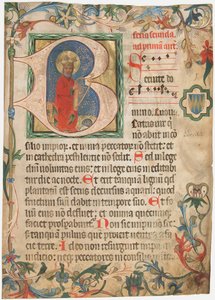 feria secunda
ad primā
Servite do
mino.
B eatus vir q
nō abiit in cō
silio impiorū et in via peccatorū nō stetit: et
in cathedra pestilentie nō sedit. Sed in lege
dn̄i voluntas eius: et in lege eius meditabit̄
die ac nocte. Et erit tanquā lignū qd̄
plantatū est secus decursus aquarū: quod
fructum suū dabit in tempore suo. Et foli
um eius nō defluet: et omnia quecumq;
faciet prosperabunt̄. Non sic impii nō sic:
sed tanq̄ pulvis quē proicit ventus a fa
cie terre. Ideo non resurgunt impii in
iudicio: neq; peccatores in concilio iustorū